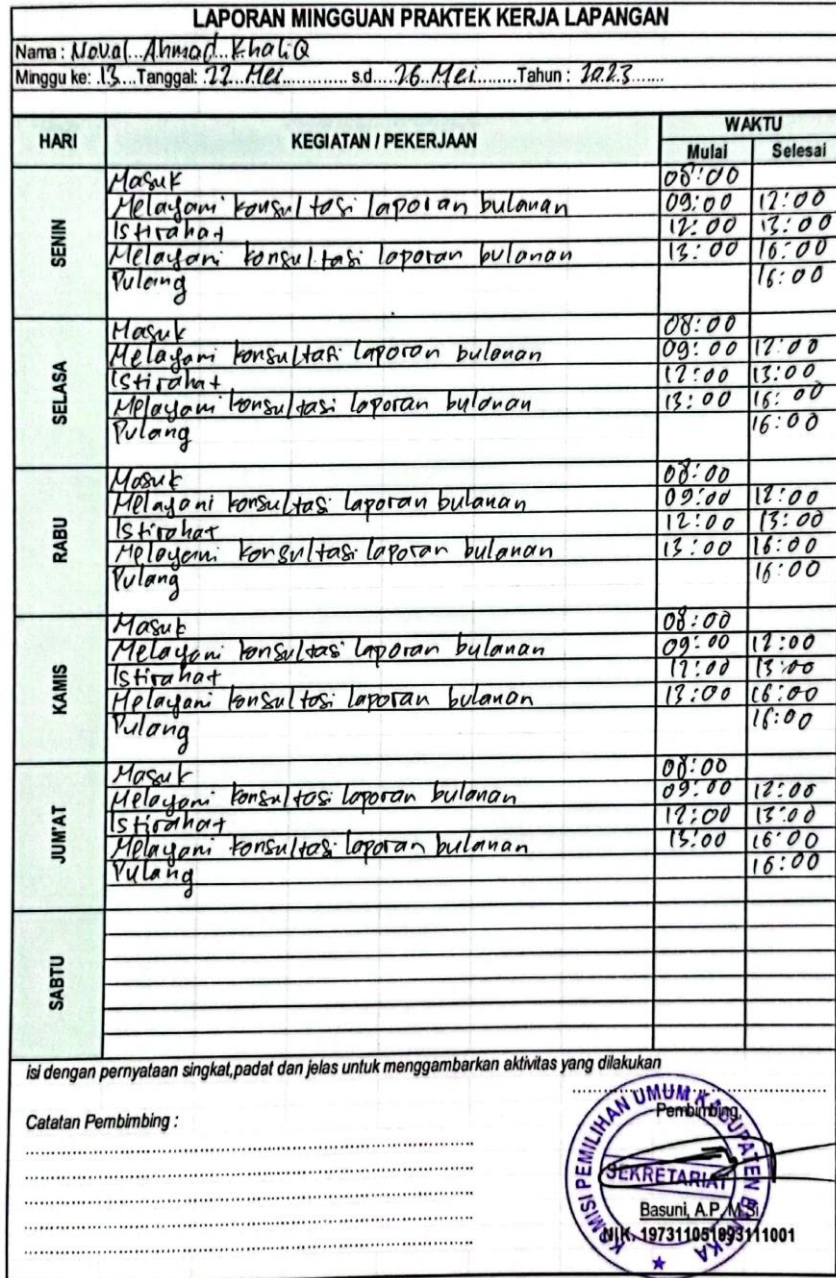 LAPORAN MINGGUAN PRAKTEK KERJA LAPANGAN
Nama : Noval Ahmad KhaliQ
Minggu ke: 13 Tanggal: 22 Mei s.d. 26 Mei Tahun : 2023
HARI KEGIATAN / PEKERJAAN WAKTU
Mulai Selesai
SENIN
Masuk 08:00
Melayani konsultasi laporan bulanan 09:00 12:00
Istirahat 12:00 13:00
Melayani konsultasi laporan bulanan 13:00 16:00
Pulang 16:00
SELASA
Masuk 08:00
Melayani konsultasi laporan bulanan 09:00 12:00
Istirahat 12:00 13:00
Melayani konsultasi laporan bulanan 13:00 16:00
Pulang 16:00
RABU
Masuk 08:00
Melayani konsultasi laporan bulanan 09:00 12:00
Istirahat 12:00 13:00
Melayani konsultasi laporan bulanan 13:00 16:00
Pulang 16:00
KAMIS
Masuk 08:00
Melayani konsultasi laporan bulanan 09:00 12:00
Istirahat 12:00 13:00
Melayani konsultasi laporan bulanan 13:00 16:00
Pulang 16:00
JUM'AT
Masuk 08:00
Melayani konsultasi laporan bulanan 09:00 12:00
Istirahat 12:00 13:00
Melayani konsultasi laporan bulanan 13:00 16:00
Pulang 16:00
SABTU
isi dengan pernyataan singkat,padat dan jelas untuk menggambarkan aktivitas yang dilakukan
Catatan Pembimbing :
Pembimbing,
KOMISI PEMILIHAN UMUM KABUPATEN BANGKA
SEKRETARIAT
Basuni, A.P, M.Si
NIK. 197311051993111001